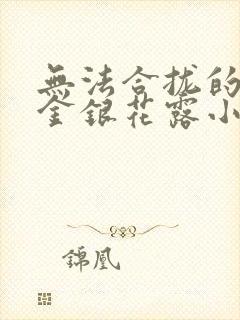 無法合拢的
金銀花露小
錦凰